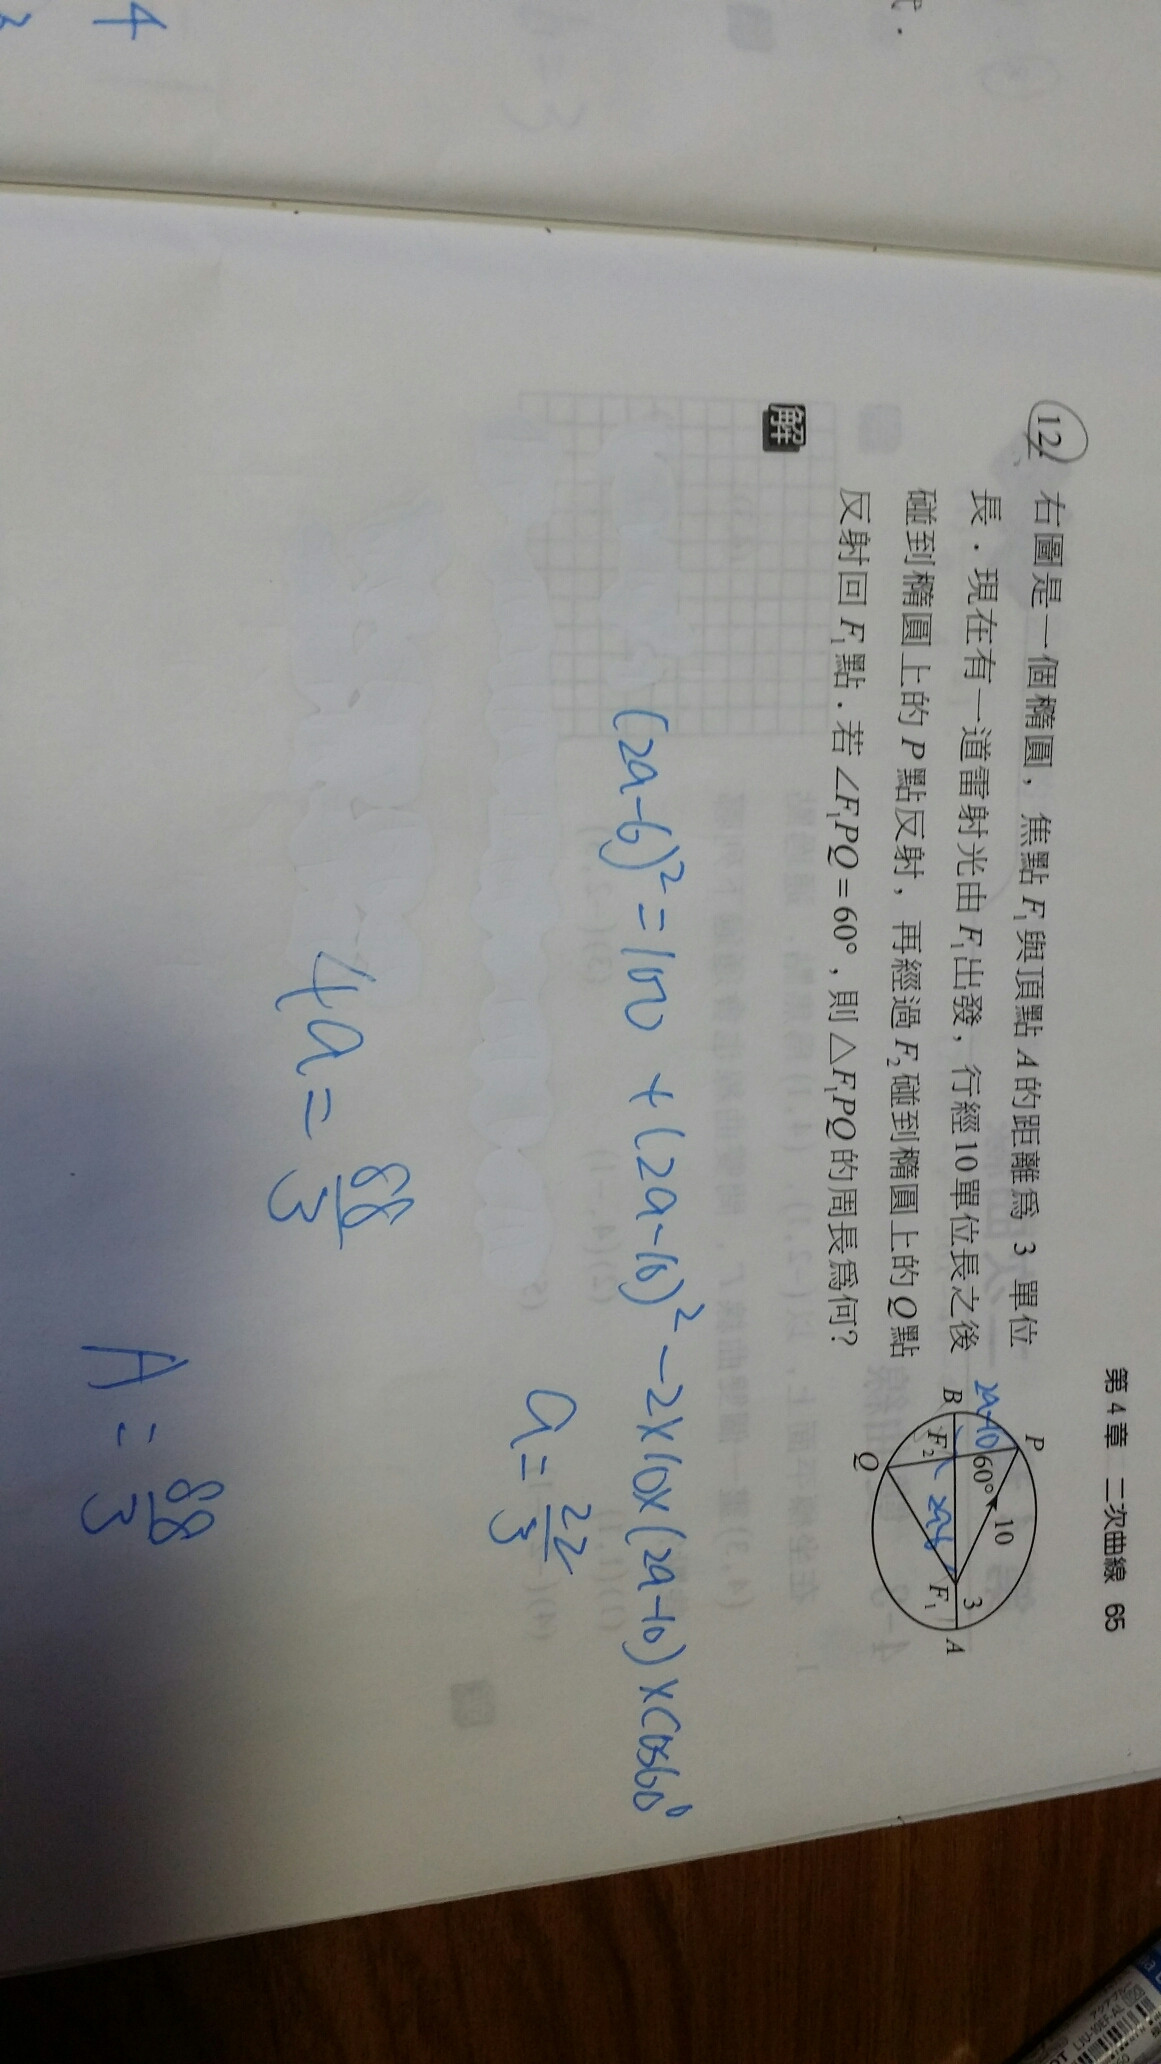 第4章 二次曲線 65
12. 右圖是一個橢圓，焦點 F₁ 與頂點 A 的距離為 3 單位
長．現在有一道雷射光由 F₁ 出發，行經 10 單位長之後
碰到橢圓上的 P 點反射，再經過 F₂ 碰到橢圓上的 Q 點
反射回 F₁ 點．若 ∠F₁PQ = 60°，則 △F₁PQ 的周長為何？
P
2a-10
60°
10
B
F₂
2a-6
F₁
3
A
Q
解
(2a-6)² = 100 + (2a-10)² - 2×10×(2a-10)×cos60°
a = 22/3
4a = 88/3
A = 88/3